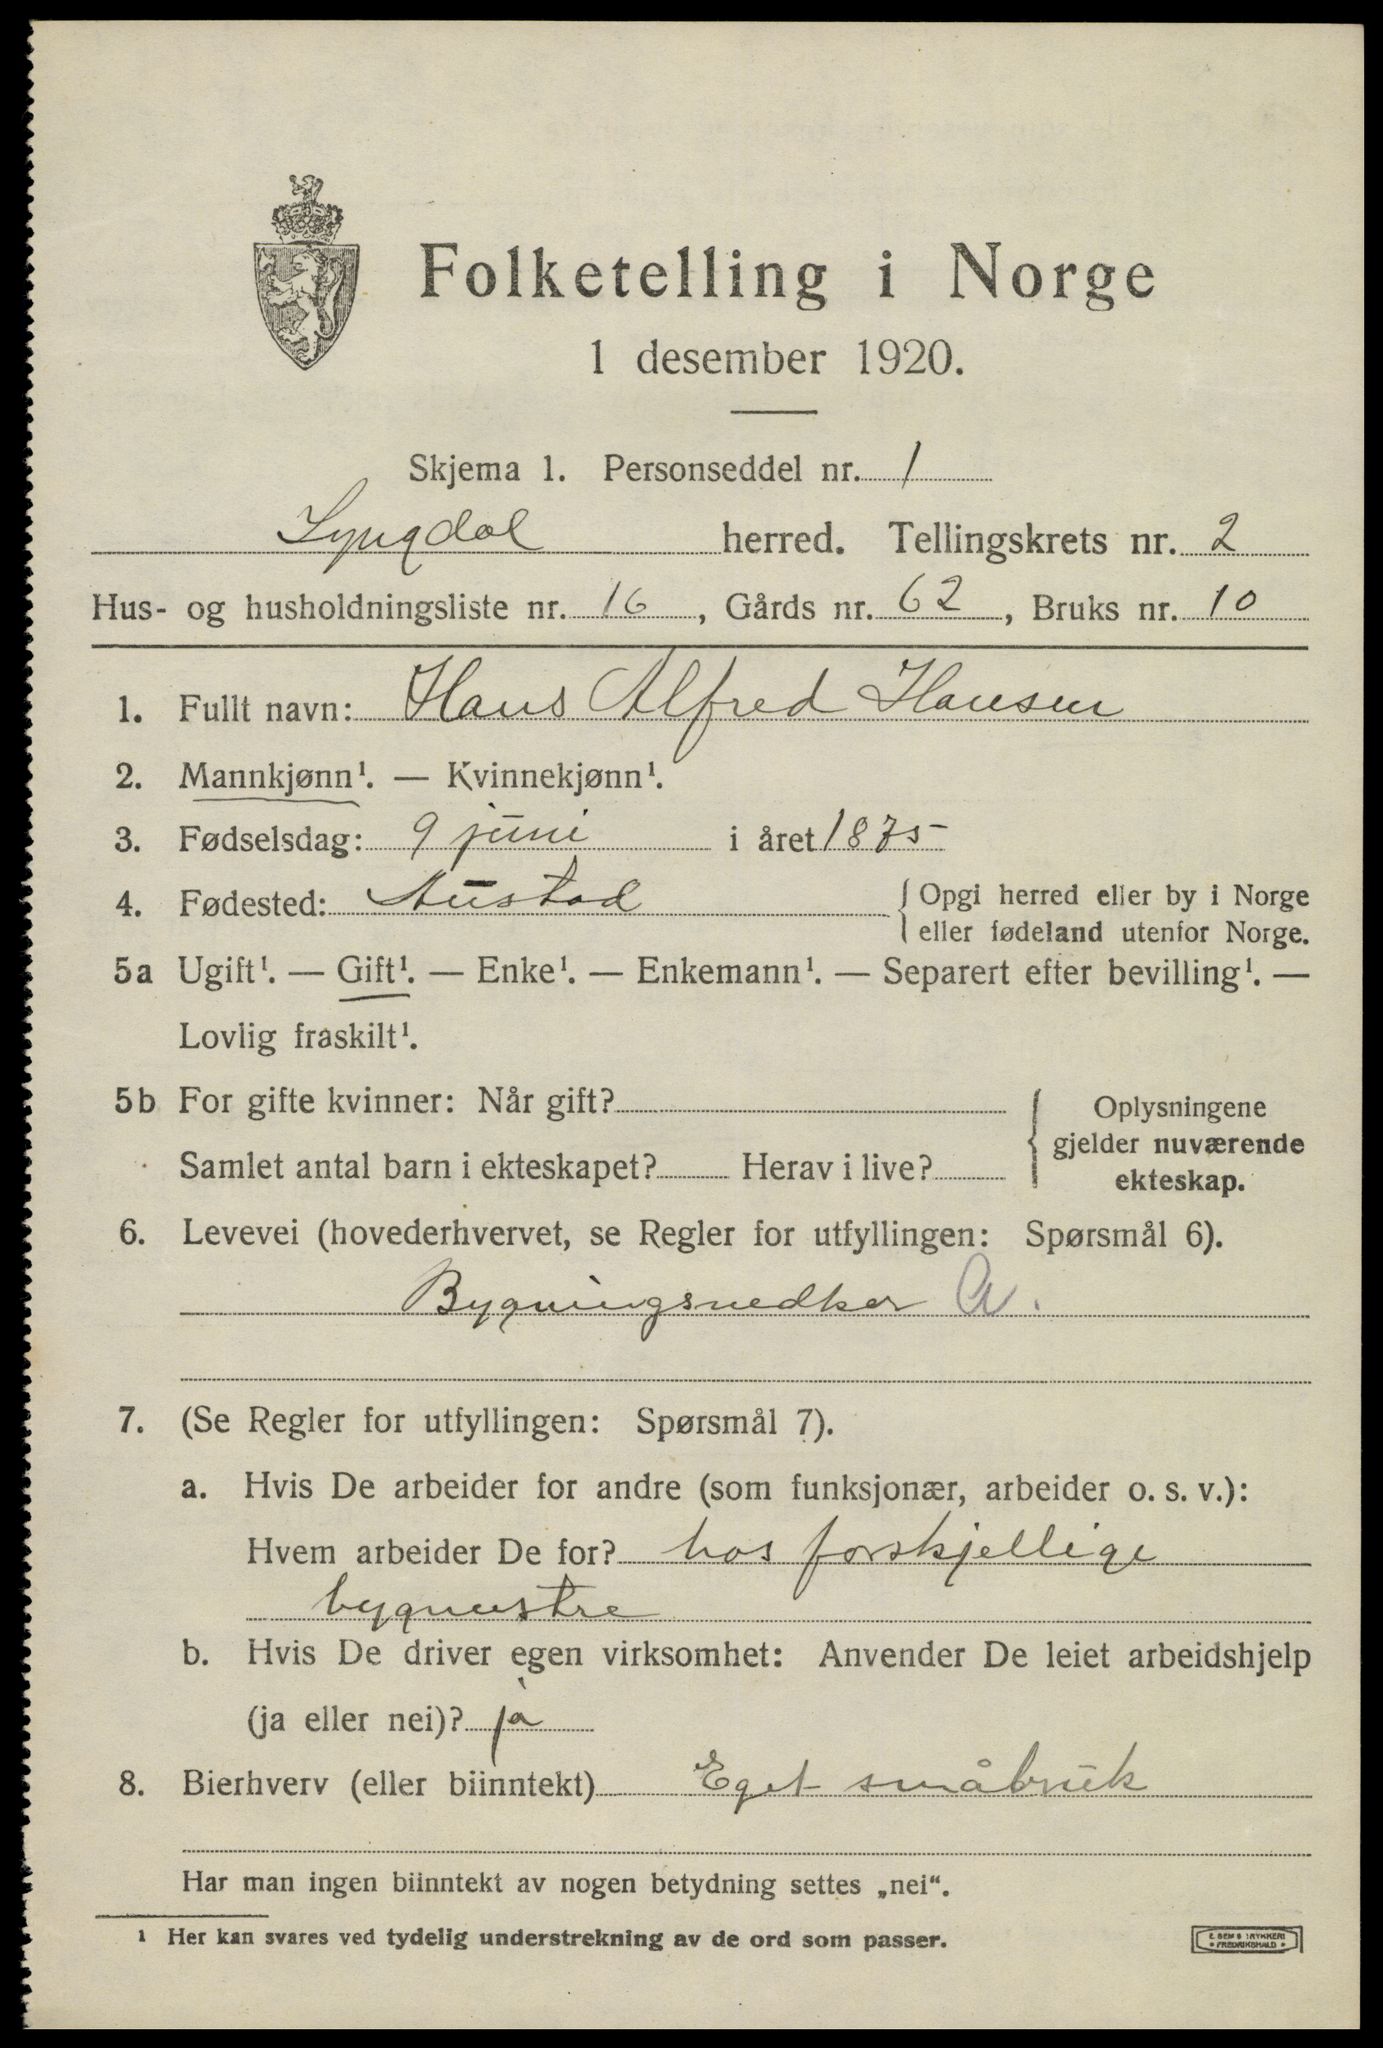 Folketelling i Norge
1 desember 1920.
Skjema 1. Personseddel nr. 1
Lyngdal herred. Tellingskrets nr. 2
Hus- og husholdningsliste nr. 16, Gårds nr. 62, Bruks nr. 10
1. Fullt navn: Hans Alfred Hansen
2. Mannkjønn¹. — Kvinnekjønn¹.
3. Fødselsdag: 9 juni i året 1875
4. Fødested: Austad { Opgi herred eller by i Norge
eller fødeland utenfor Norge.
5a Ugift¹. — Gift¹. — Enke¹. — Enkemann¹. — Separert efter bevilling¹. —
Lovlig fraskilt¹.
5b For gifte kvinner: Når gift? { Oplysningene
gjelder nuværende
Samlet antal barn i ekteskapet? Herav i live?
ekteskap.
6. Levevei (hovederhvervet, se Regler for utfyllingen: Spørsmål 6).
Bygningsnedker a.
7. (Se Regler for utfyllingen: Spørsmål 7).
a. Hvis De arbeider for andre (som funksjonær, arbeider o. s. v.):
Hvem arbeider De for? hos forskjellige
bygmestre
b. Hvis De driver egen virksomhet: Anvender De leiet arbeidshjelp
(ja eller nei)? ja
8. Bierhverv (eller biinntekt) Eget småbruk
Har man ingen biinntekt av nogen betydning settes „nei“.
¹ Her kan svares ved tydelig understrekning av de ord som passer.
E. SEM'S TRYKKERI
• FREDRIKSHALD •